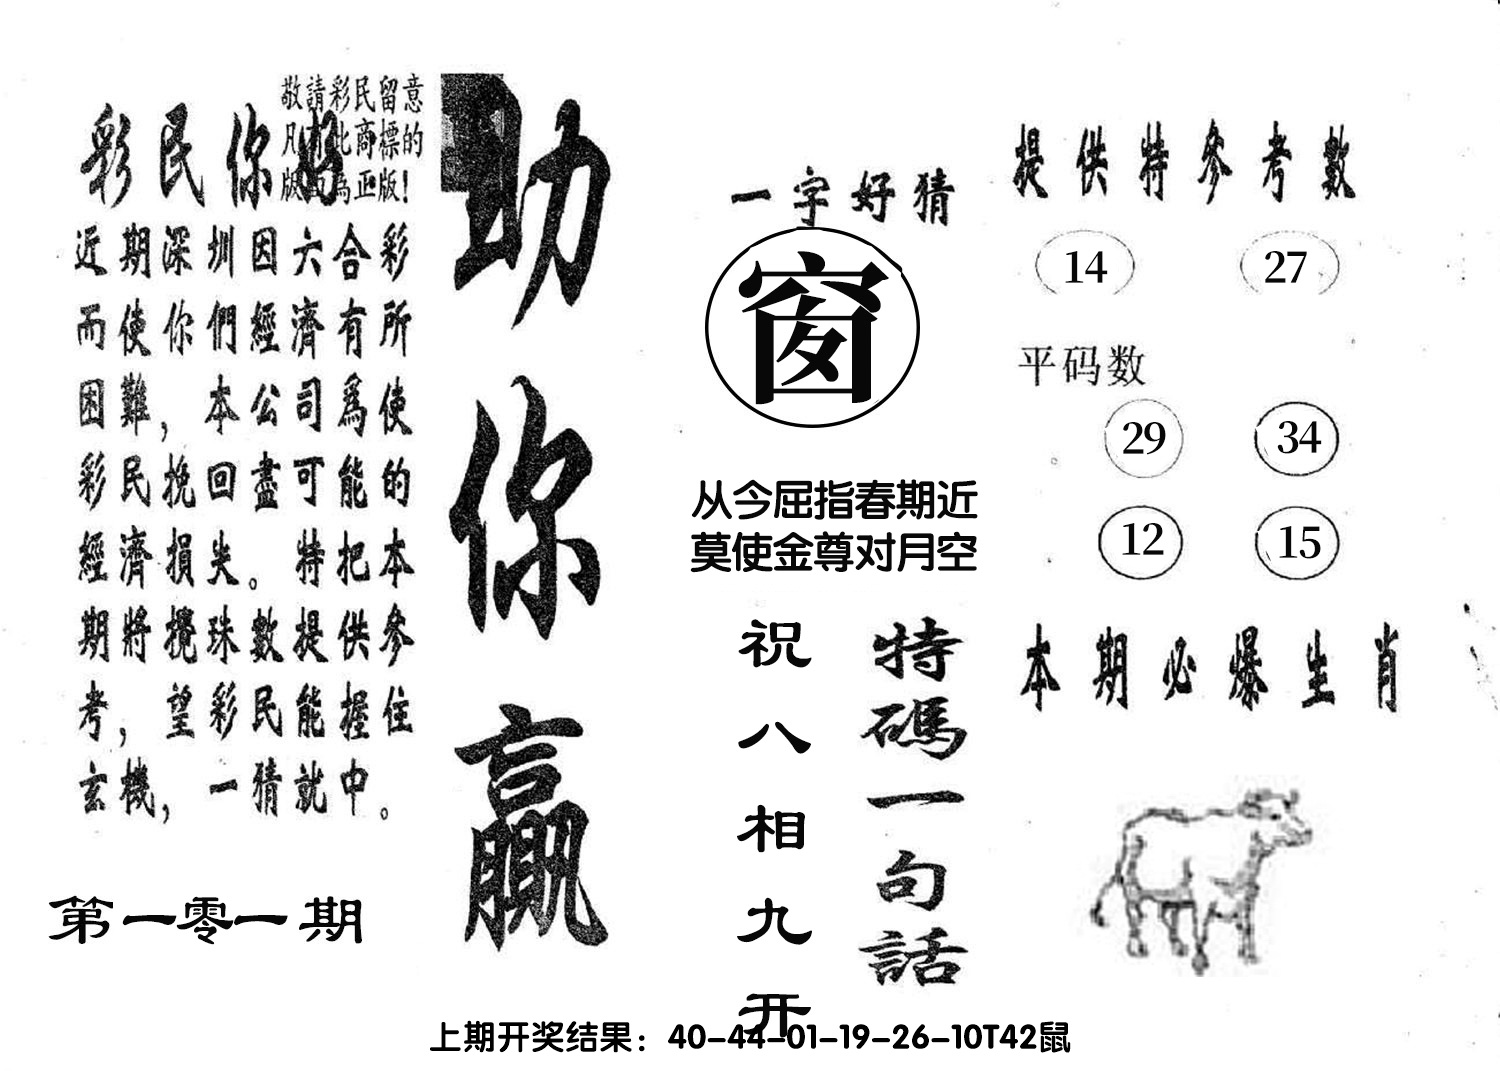 敬請彩民留意
凡有此商標的
版面為正版!
彩民你好
近期深圳因六合彩
而使你們經濟有所
困難，本公司爲使
彩民挽回盡可能的
經濟損失。特把本
期將攪珠數提供參
考，望彩民能握住
玄機，一猜就中。
第一零一期
助你贏
一字好猜
窗
从今屈指春期近
莫使金尊对月空
特碼一句話
祝八相九开
提供特參考數
14 27
平码数
29 34
12 15
本期必爆生肖
上期开奖结果：40-44-01-19-26-10T42鼠